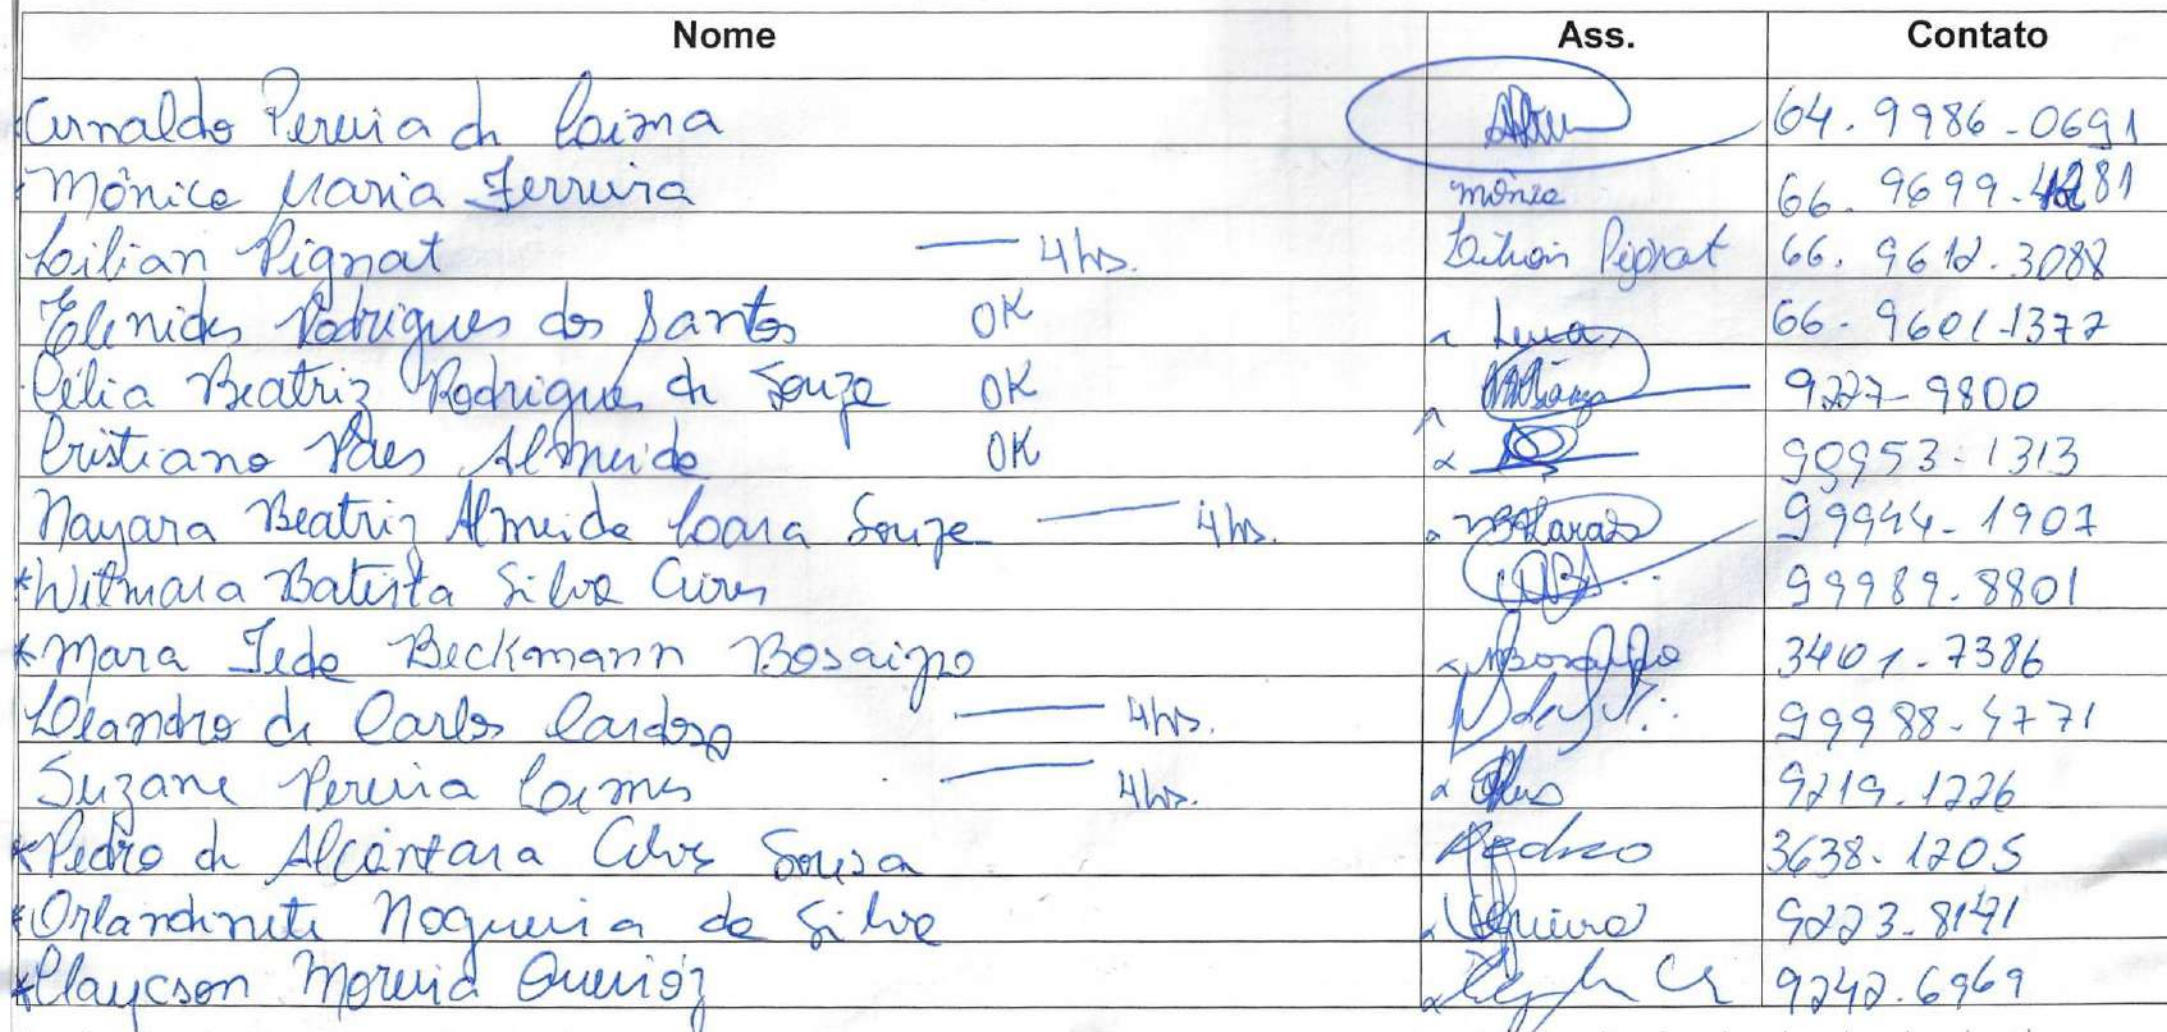 Nome Ass. Contato
Arnaldo Pereira de Lima 64.9986-0691
Mônica Maria Ferreira Mônica 66.9699.4281
Lilian Pignat — 4hs. Lilian Pignat 66.9612.3088
Elenides Rodrigues dos Santos OK 66-9601-1377
Célia Beatriz Rodrigues de Souza OK 9227-9800
Cristiano Paes Almeida OK 99953-1313
Nayara Beatriz Almeida Lara Souza — 4hs. 99944-1907
*Witmara Batista Silva Aires 99989.8801
*Mara Iede Beckmann Bosaipo 3401-7386
Leandro de Carlos Cardoso — 4hs. 99988-4771
Suzane Pereira Lemes — 4hs. 9219.1226
*Pedro de Alcântara Alves Sousa Pedro 3638.1205
*Orlandinete Nogueira da Silva 9223-8141
*Claycson Moreira Queiróz 9242.6969